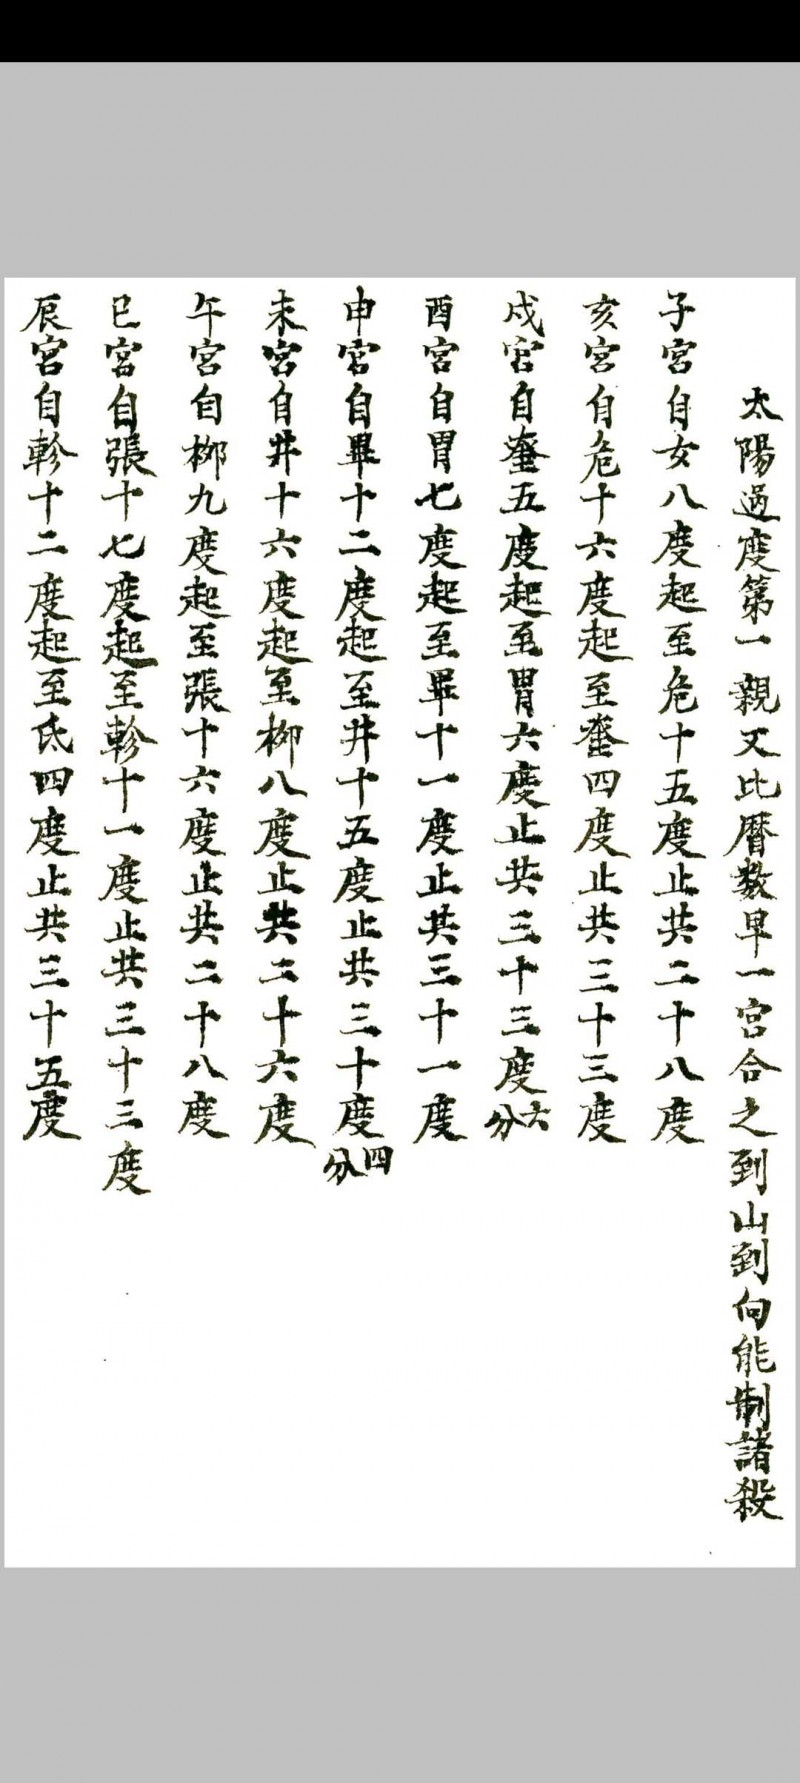 太陽過度第一親又比曆数早一宮合之到山到向能制諸殺
子宮自女八度起至危十五度止共二十八度
亥宮自危十六度起至奎四度止共三十三度
戌宮自奎五度起至胃六度止共三十三度六分
酉宮自胃七度起至畢十一度止共三十一度
申宮自畢十二度起至井十五度止共三十度四分
未宮自井十六度起至柳八度止共二十六度
午宮自柳九度起至張十六度止共二十八度
巳宮自張十七度起至軫十一度止共三十三度
辰宮自軫十二度起至氐四度止共三十五度